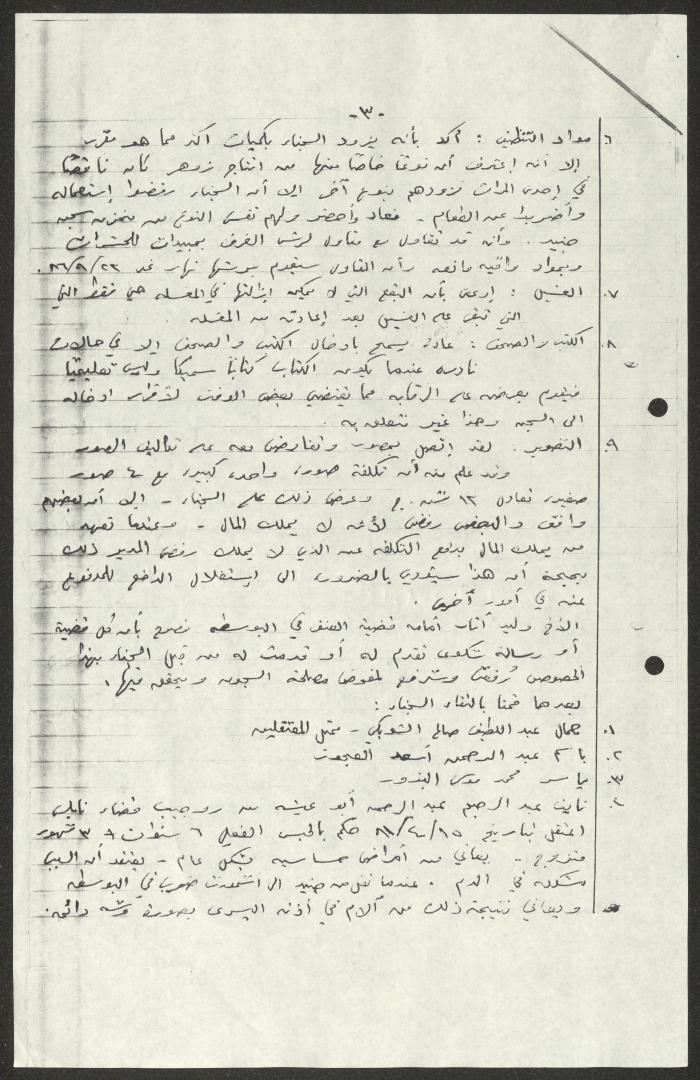 -٣-
٦. مواد التنظيف : أكد بأنه يزود السجناء بكميات أكثر مما هو مقرر
إلا أنه اعترف أن نوعًا خاصًا منها من انتاج زوهر كان ناقصًا
في إحدى المرات فزودهم بنوع آخر الا أن السجناء رفضوا إستعماله
وأضربوا عن الطعام - فعاد وأحضر لهم نفس النوع من مخزن سجن
جنيد . وأنه قد تقاول مع مقاول لرش الغرف بمبيدات للحشرات
وبمواد واقيه مانعه وأن المقاول سيقوم برشها نهار غد ٨٦/٩/٢٣.
٧. الغسيل : إدعى بأن البقع التي لا يمكن ازالتها في المغسله هي فقط التي
التي تبقى على الغسيل بعد إعادته من المغسله
٨. الكتب والصحف : عادة يسمح بادخال الكتب والصحف الا في حالات
نادره عندما يكون الكتاب كتابًا سميكًا وليس تعليميًا
فيقوم بعرضه على الرقابه مما يقتضي بعض الوقت لأقرار ادخاله
الى السجن وهذا غير متعلق به .
٩. التصوير : لقد إتصل بمصور وتفاوض معه على تكاليف الصور
وقد علم منه أن تكلفة صورة واحدة كبيرة مع ٤ صور
صغيرة تعادل ١٢ ش.ج وعرض ذلك على السجناء - الا أن بعضهم
وافق والبعض رفض لأنه لا يملك المال - وعندما تعهد
من يملك المال بدفع التكلفه عن الذي لا يملك رفض المدير ذلك
بحجة أن هذا سيؤدي بالضرورة الى إستغلال الدافع للمدفوع
عنه في أمور أخرى .
الأخ وليد أثار أمامه قضية العنف في البوسطه فصرح بأن كل قضية
أو رسالة شكوى تقدم له أو قدمت له من قبل السجناء بهذا
الخصوص رُفعت وسترفع لمفوض مصلحة السجون ويحقق فيها .
بعدها قمنا بالتقاء السجناء :
١. جمال عبد اللطيف صالح الشوبكي - ممثل المعتقلين
٢. باسم عبد الرحمن أسعد العجوت
٣. ياسر محمد موسى البزور
٤. نايف عبد الرحيم عبد الرحمن أبو عيشه من روجيب قضاء نابلس
اعتقل بتاريخ حكم بالحبس الفعلي ٦ سنوات و ٣ شهور
متزوج - يعاني من أمراض حساسيه بشكل عام - يعتقد أن السبب
مشكله في الدم . عندما نقل من جنيد الى ضرب في البوسطه
ويعاني نتيجة ذلك من آلام في أذنه اليسرى بصورة دائمه .